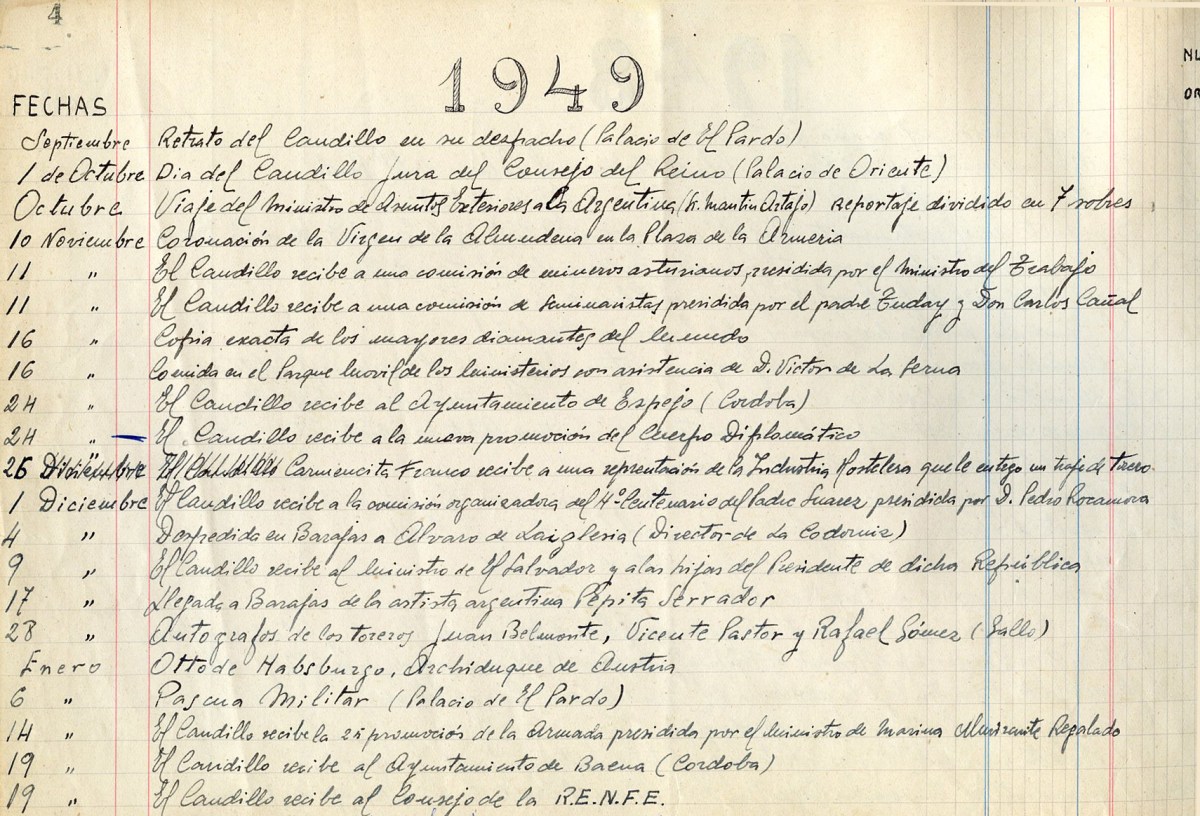 4
1949
FECHAS
NU
OR
Septiembre Retrato del Caudillo en su despacho (Palacio de El Pardo)
1 de Octubre Dia del Caudillo Jura del Consejo del Reino (Palacio de Oriente)
Octubre Viaje del Ministro de Asuntos Exteriores a la Argentina (Sr. Martin Artajo) Reportaje dividido en 7 sobres
10 Noviembre Coronación de la Virgen de la Almudena en la Plaza de la Armeria
11 " El Caudillo recibe a una comisión de mineros asturianos, presidida por el Ministro del Trabajo
11 " El Caudillo recibe a una comisión de Seminaristas presidida por el padre y Don Carlos Cañal
16 " Copia exacta de los mayores diamantes del mundo
16 " Comida en el Parque Movil de los Ministerios con asistencia de D. Victor de La Serna
24 " El Caudillo recibe al Ayuntamiento de Espejo (Cordoba)
24 " El Caudillo recibe a la nueva promoción del Cuerpo Diplomático
26 Carmencita Franco recibe a una reprentación de la Industria Hostelera que le entego un traje de torero.
1 Diciembre El Caudillo recibe a la comisión organizadora del 4º Centenario del Padre Suarez presidida por D. Pedro Rocamora
4 " Despedida en Barajas a Alvaro de Laiglesia (Director de La Codorniz)
9 " El Caudillo recibe al Ministro de El Salvador y a las hijas del Presidente de dicha República
17 " Llegada a Barajas de la artista argentina Pepita Serrador
28 " Autografos de los toreros Juan Belmonte, Vicente Pastor y Rafael Gómez (Gallo)
Enero Otto de Habsburgo, Archiduque de Austria
6 " Pascua Militar (Palacio de El Pardo)
14 " El Caudillo recibe la 25 promoción de la Armada presidida por el Ministro de Marina Almirante Regalado
19 " El Caudillo recibe al Ayuntamiento de Baena (Cordoba)
19 " El Caudillo recibe al Consejo de la R.E.N.F.E.